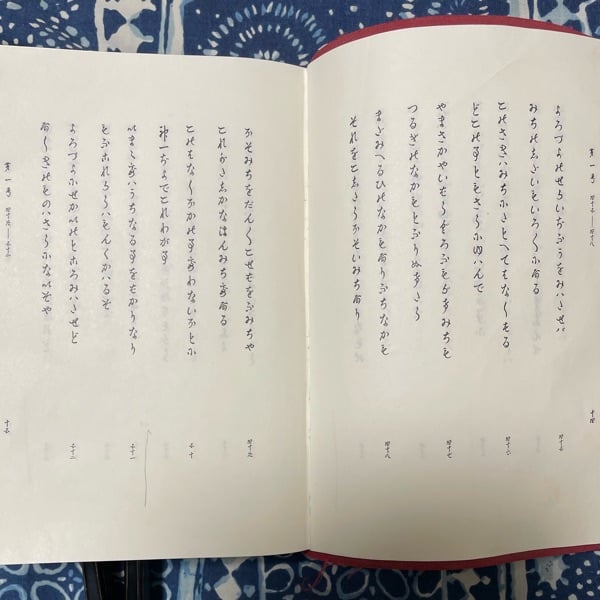 第一号 四十五―四十八
十四
よろつよのせかいぢううをみハたせバ
みちのしだいもいろ〳〵にある
四十五
このさきハみちにたとへてはなしする
どこの事ともさらにゆハんで
四十六
やまさかやいばらぐろふもがけみちも
つるぎのなかもとふりぬけたら
四十七
まだみへるひのなかもありふちなかも
それをこしたらほそいみちあり
四十八
ほそみちをだん〳〵こせばをふみちや
これがたしかなほんみちである
四十九
このはなしほかの事でわないほどに
神一ぢよでこれわが事
五十
いまゝでハうちなる事をばかりなり
もふこれからハもんくかハるぞ
五十一
よろつよにせかいのところみハたせど
あしきのものハさらにないぞや
五十二
第一号 四十九―五十二
十五